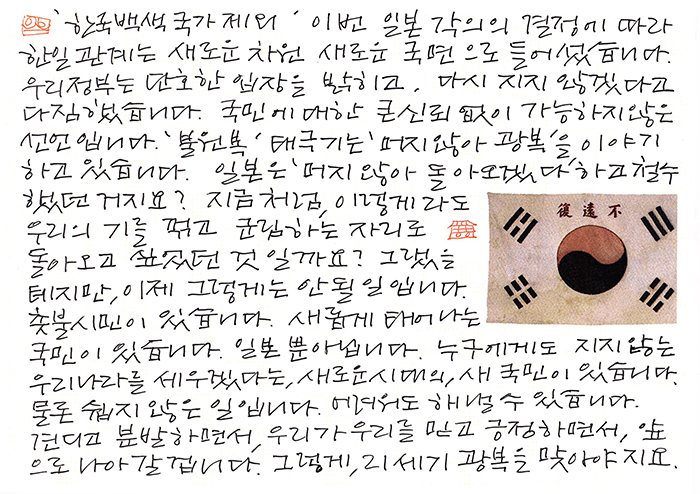 '한국백색국가 제외' 이번 일본 각의의 결정에 따라
한일관계는 새로운 차원 새로운 국면으로 들어섰습니다.
우리정부는 단호한 입장을 밝히고, 다시 지지 않겠다고
다짐했습니다. 국민에 대한 큰신뢰 없이 가능하지않은
선언입니다. '불원복' 태극기는 '머지않아 광복'을 이야기
하고 있습니다. 일본은 '머지 않아 돌아오겠다' 하고 철수
했었던 거지요? 지금처럼, 이렇게라도
우리의 기를 꺾고 군림하는 자리로
돌아오고 싶었던 것일까요? 그랬을
테지만, 이제 그렇게는 안될일입니다.
촛불시민이 있습니다. 새롭게 태어나는
국민이 있습니다. 일본뿐아닙니다. 누구에게도 지지않는
우리나라를 세우겠다는, 새로운시대의, 새 국민이 있습니다.
물론 쉽지 않은 일입니다. 어려워도 해낼 수 있습니다.
견디고 분발하면서, 우리가 우리를 믿고 긍정하면서, 앞
으로 나아갈겁니다. 그렇게, 21세기 광복을 맞아야지요.
復遠不